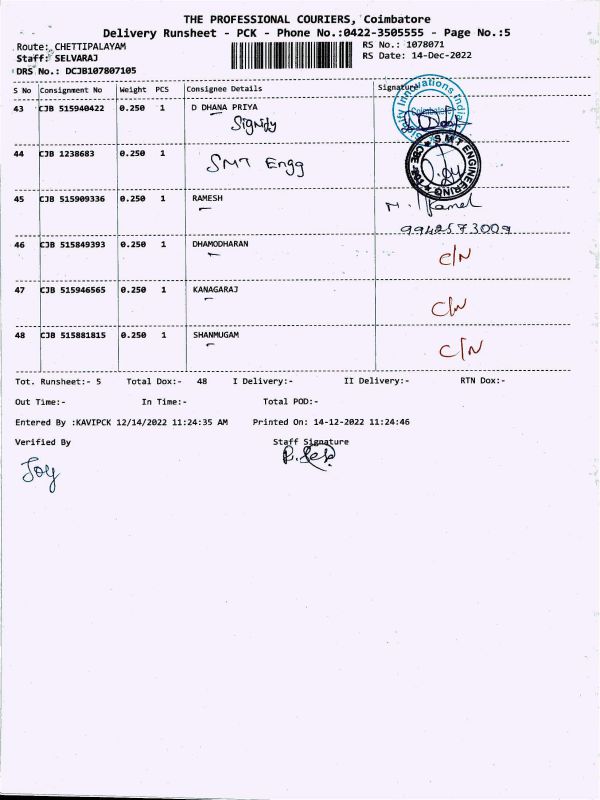 THE PROFESSIONAL COURIERS, Coimbatore
Delivery Runsheet - PCK - Phone No.:0422-3505555 - Page No.:5
Route: CHETTIPALAYAM
RS No.: 1078071
Staff: SELVARAJ
RS Date: 14-Dec-2022
DRS No.: DCJB107807105
S No Consignment No Weight PCS Consignee Details Signature
43 CJB 515940422 0.250 1 D DHANA PRIYA
Signdy
44 CJB 1238683 0.250 1
SMT Engg
SMT ENGINEERING
45 CJB 515909336 0.250 1 RAMESH
9942573009
46 CJB 515849393 0.250 1 DHAMODHARAN C/N
47 CJB 515946565 0.250 1 KANAGARAJ C/N
48 CJB 515881815 0.250 1 SHANMUGAM C/N
Tot. Runsheet:- 5 Total Dox:- 48 I Delivery:- II Delivery:- RTN Dox:-
Out Time:- In Time:- Total POD:-
Entered By :KAVIPCK 12/14/2022 11:24:35 AM Printed On: 14-12-2022 11:24:46
Verified By Staff Signature
Joy